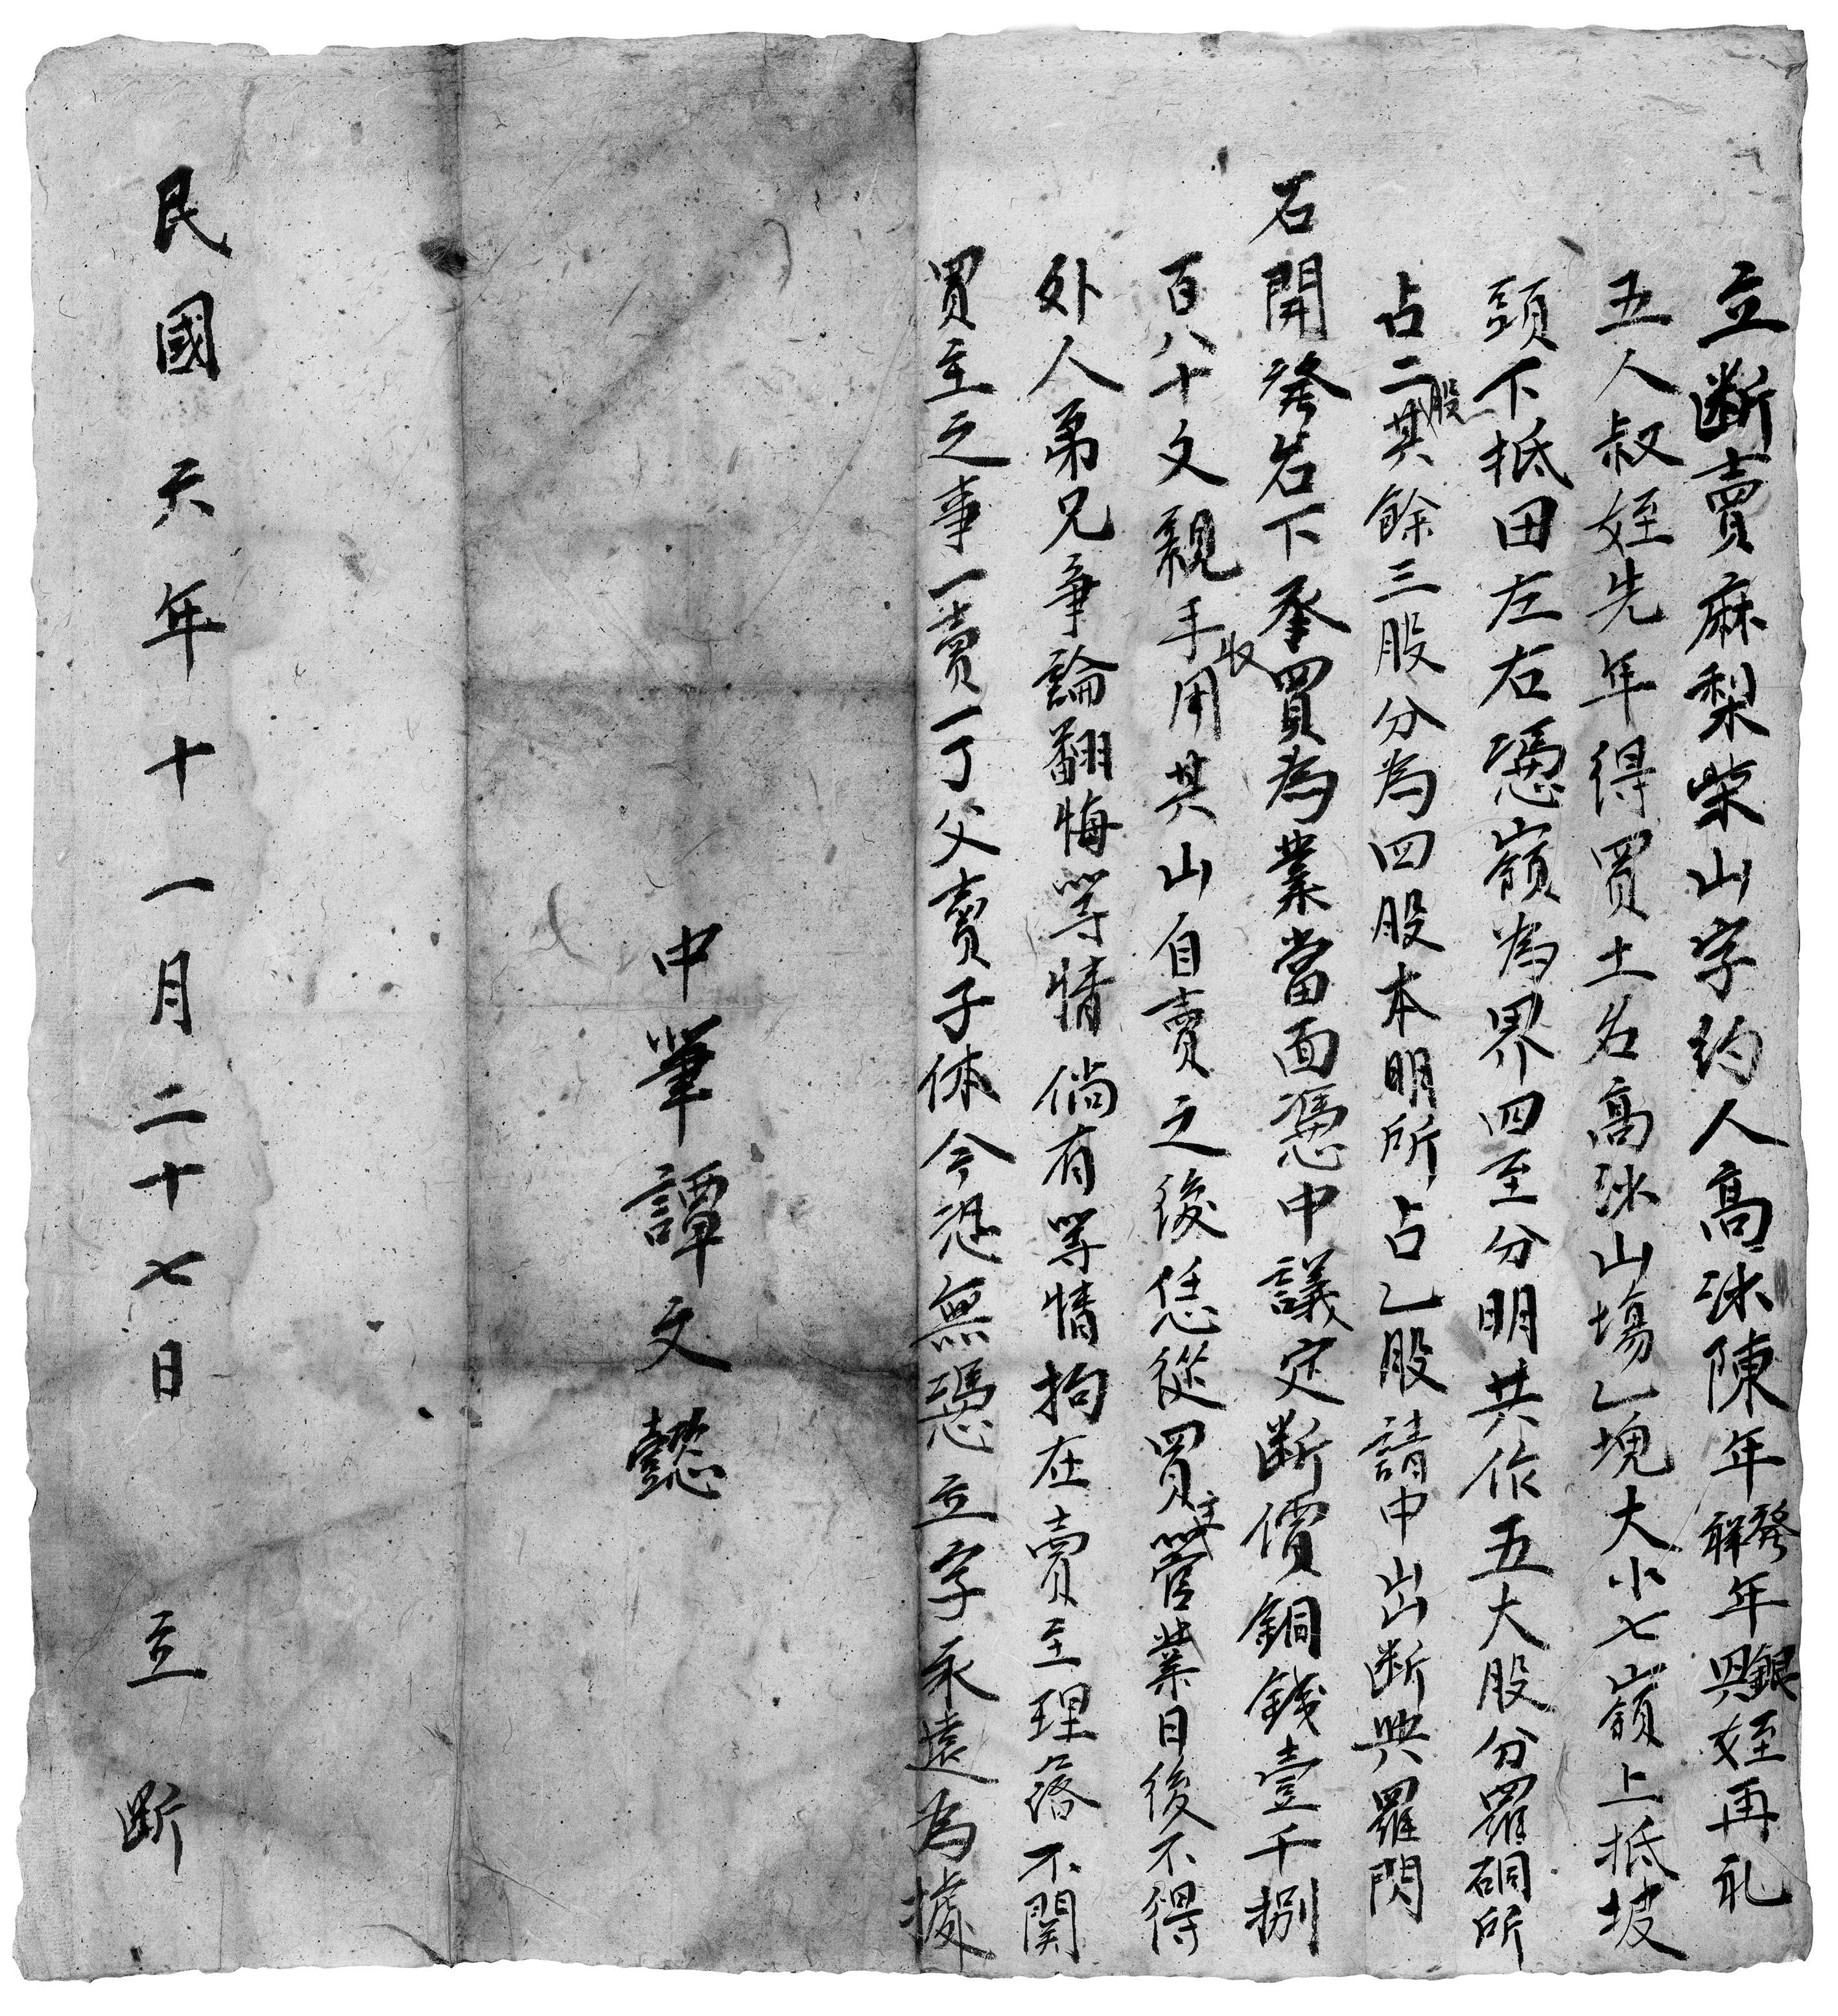 立断賣麻梨柴山字約人高冰陳年發祥年銀興姪再礼
五人叔姪先年得買土名高冰山塲乙塊大小七嶺上抵坡
頭下抵田左右憑嶺為界四至分明共作五大股分羅硐所
占二股其餘三股分為四股本明所占乙股請中出断與羅閃
石開發名下承買為業當面憑中議定断價銅錢壹千捌
百八十文親手收用其山自賣之後恁從買主管業日後不得
外人弟兄爭論翻悔等情倘有等情拘在賣主理落不関
買主之事一賣一丁父賣子休今恐無憑立字永遠為據
中筆譚文懿
民國天年十一月二十七日立断